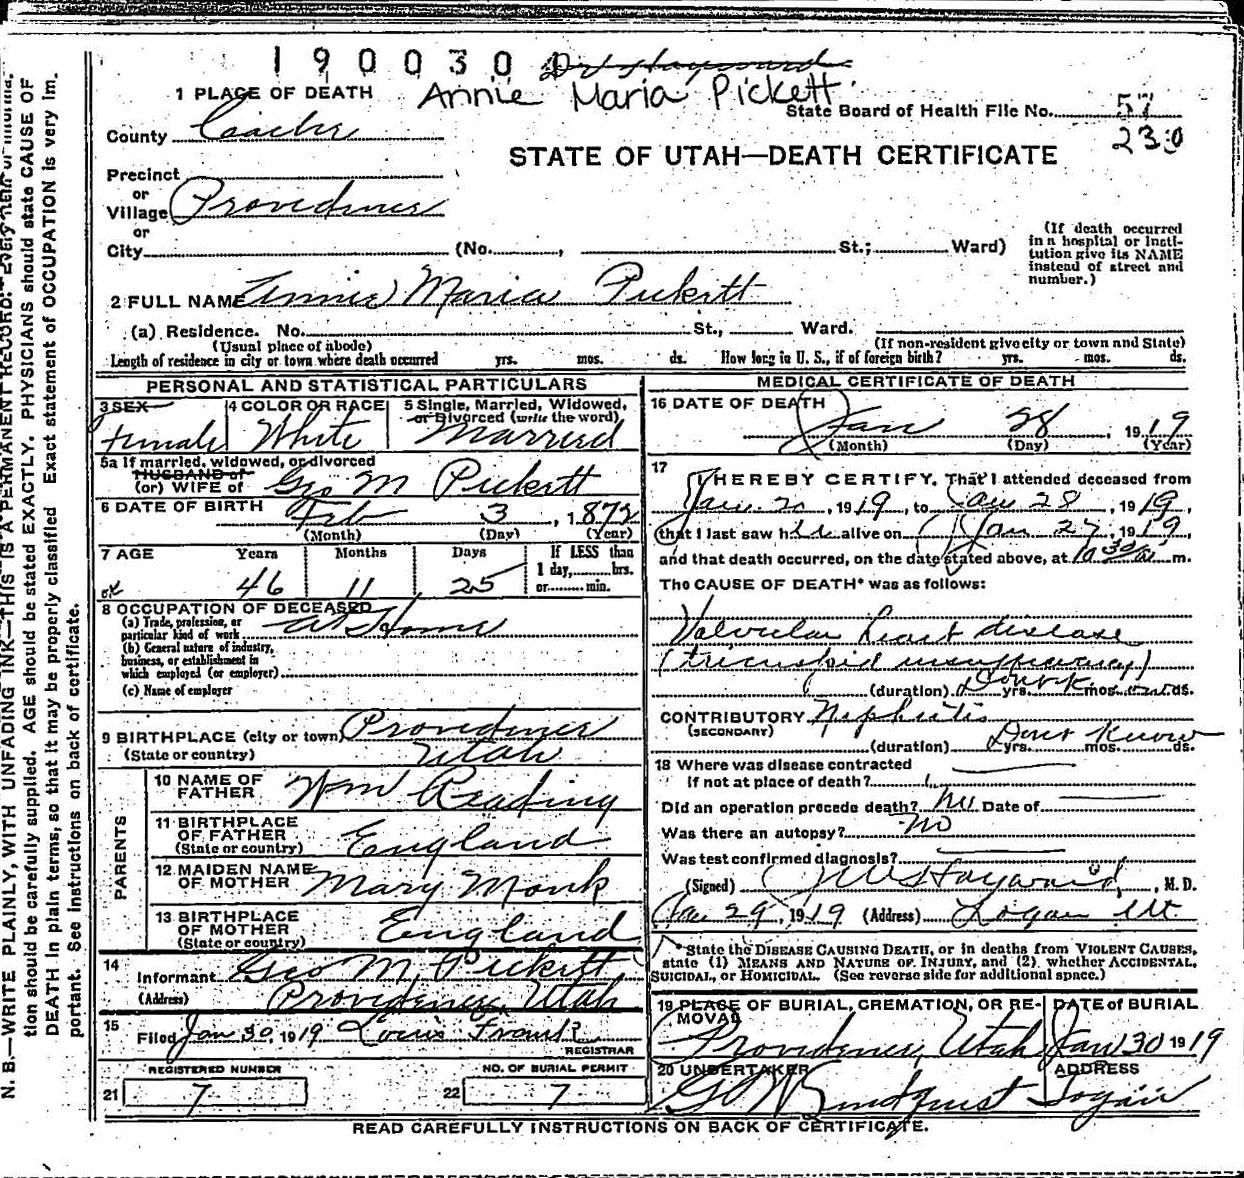 190030
Annie Maria Pickett
1 PLACE OF DEATH
State Board of Health File No. 57
230
County Cache
STATE OF UTAH—DEATH CERTIFICATE
Precinct
or
Village Providence
or
City (No. , St.; Ward)
(If death occurred in a hospital or institution give its NAME instead of street and number.)
2 FULL NAME Annie Maria Pickett
(a) Residence. No. St., Ward.
(Usual place of abode) (If non-resident give city or town and State)
Length of residence in city or town where death occurred yrs. mos. ds. How long in U. S., if of foreign birth? yrs. mos. ds.
PERSONAL AND STATISTICAL PARTICULARS
3 SEX Female
4 COLOR OR RACE White
5 Single, Married, Widowed, or Divorced (write the word) Married
5a If married, widowed, or divorced
HUSBAND of
(or) WIFE of Geo M Pickett
6 DATE OF BIRTH Feb 3, 1872
(Month) (Day) (Year)
7 AGE Years Months Days If LESS than
1 day, hrs.
46 11 25 or min.
8 OCCUPATION OF DECEASED
(a) Trade, profession, or particular kind of work At Home
(b) General nature of industry, business, or establishment in which employed (or employer)
(c) Name of employer
9 BIRTHPLACE (city or town) Providence
(State or country) Utah
PARENTS
10 NAME OF FATHER Wm Reading
11 BIRTHPLACE OF FATHER (State or country) England
12 MAIDEN NAME OF MOTHER Mary Monk
13 BIRTHPLACE OF MOTHER (State or country) England
14 Informant Geo M. Pickett
(Address) Providence Utah
15 Filed Jan 30, 1919 Louis
REGISTRAR
REGISTERED NUMBER
21 7
NO. OF BURIAL PERMIT
22 7
MEDICAL CERTIFICATE OF DEATH
16 DATE OF DEATH
Jan 28, 1919
(Month) (Day) (Year)
17 I HEREBY CERTIFY, That I attended deceased from
Jan. 20, 1919, to Jan 28, 1919,
that I last saw her alive on Jan 27, 1919,
and that death occurred, on the date stated above, at 10 30 a m.
The CAUSE OF DEATH* was as follows:
Valvular heart disease
(tricuspid insufficiency)
(duration) Don't k yrs. mos. ds.
CONTRIBUTORY Nephritis
(SECONDARY)
(duration) Dont Know yrs. mos. ds.
18 Where was disease contracted
if not at place of death?
Did an operation precede death? No Date of
Was there an autopsy? No
Was test confirmed diagnosis?
(Signed) Hayward, M. D.
Jan 29, 1919 (Address) Logan Ut
*State the DISEASE CAUSING DEATH, or in deaths from VIOLENT CAUSES, state (1) MEANS AND NATURE OF INJURY, and (2) whether ACCIDENTAL, SUICIDAL, or HOMICIDAL. (See reverse side for additional space.)
19 PLACE OF BURIAL, CREMATION, OR REMOVAL
Providence, Utah
DATE of BURIAL
Jan 30 1919
20 UNDERTAKER
G W Lindquist
ADDRESS
Logan
READ CAREFULLY INSTRUCTIONS ON BACK OF CERTIFICATE.
N. B.—WRITE PLAINLY, WITH UNFADING INK—THIS IS A PERMANENT RECORD.
tion should be carefully supplied. AGE should be stated EXACTLY. PHYSICIANS should state CAUSE OF
DEATH in plain terms, so that it may be properly classified. Exact statement of OCCUPATION is very im-
portant. See instructions on back of certificate.